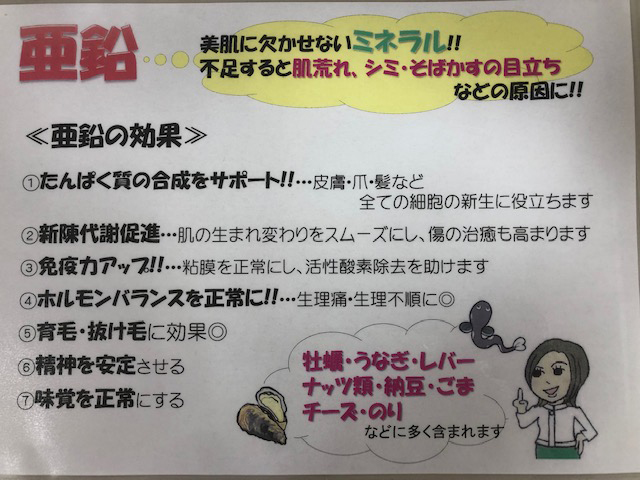 亜鉛
美肌に欠かせないミネラル!!
不足すると肌荒れ、シミ・そばかすの目立ち
などの原因に!!
≪亜鉛の効果≫
①たんぱく質の合成をサポート!!…皮膚・爪・髪など
全ての細胞の新生に役立ちます
②新陳代謝促進…肌の生まれ変わりをスムーズにし、傷の治癒も高まります
③免疫力アップ!!…粘膜を正常にし、活性酸素除去を助けます
④ホルモンバランスを正常に!!…生理痛・生理不順に◎
⑤育毛・抜け毛に効果◎
⑥精神を安定させる
⑦味覚を正常にする
牡蠣・うなぎ・レバー
ナッツ類・納豆・ごま
チーズ・のり
などに多く含まれます